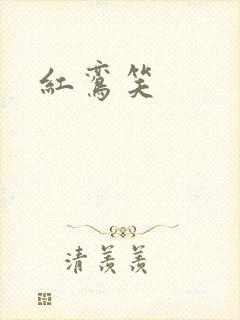 紅鸞笑
清羨羨